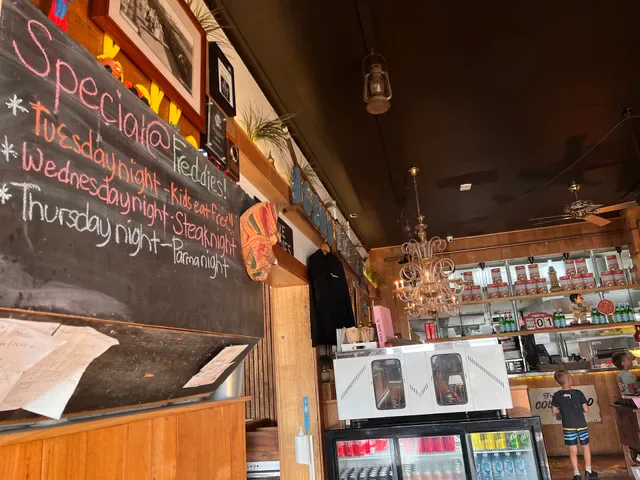 Special@Freddies!
* Tuesday night - Kids eat free!!
* Wednesday night - Steak night
* Thursday night - Parma night